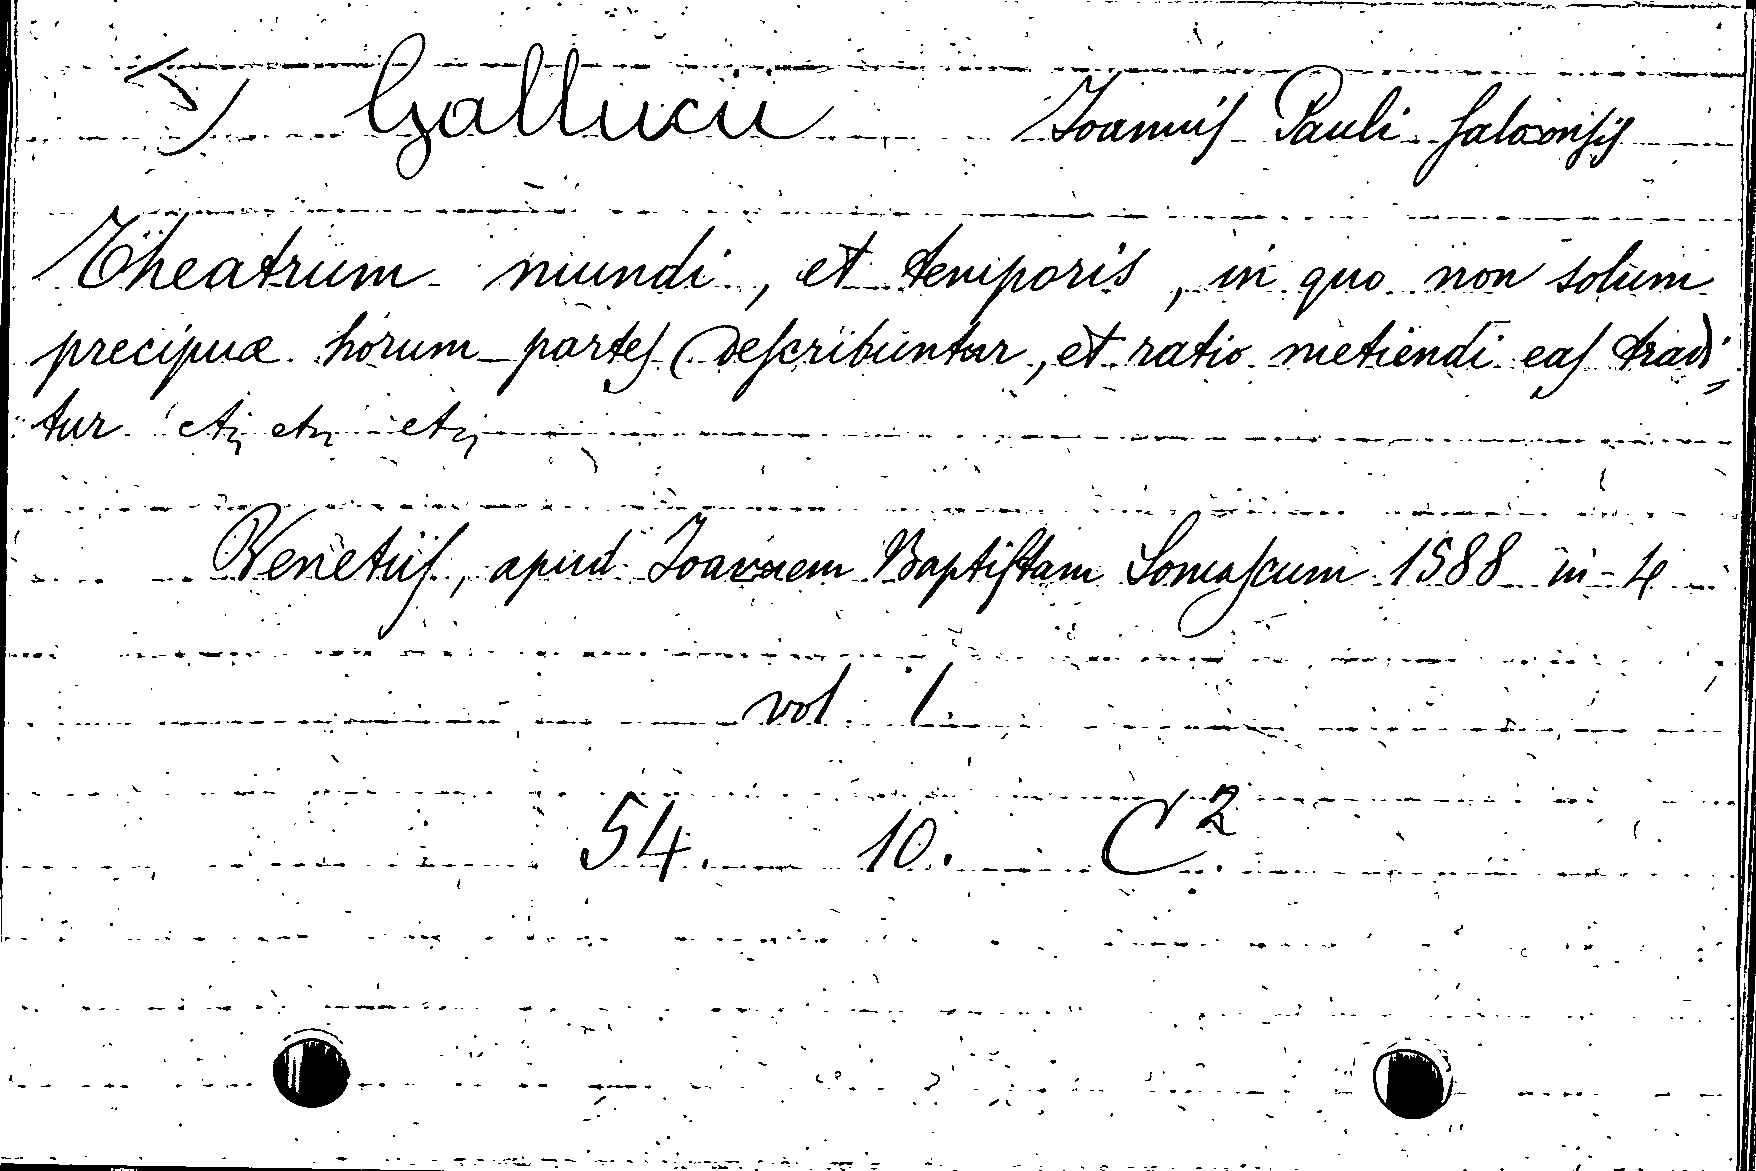 Gallucii Joannis Pauli Saloensis
Theatrum mundi, et temporis, in quo non solum
precipuæ horum partes describuntur, et ratio metiendi eas tradi,
tur etc etc etc
Venetiis, apud Joannem Baptistam Somascum 1588 in-4
vol 1
54. 10. C²